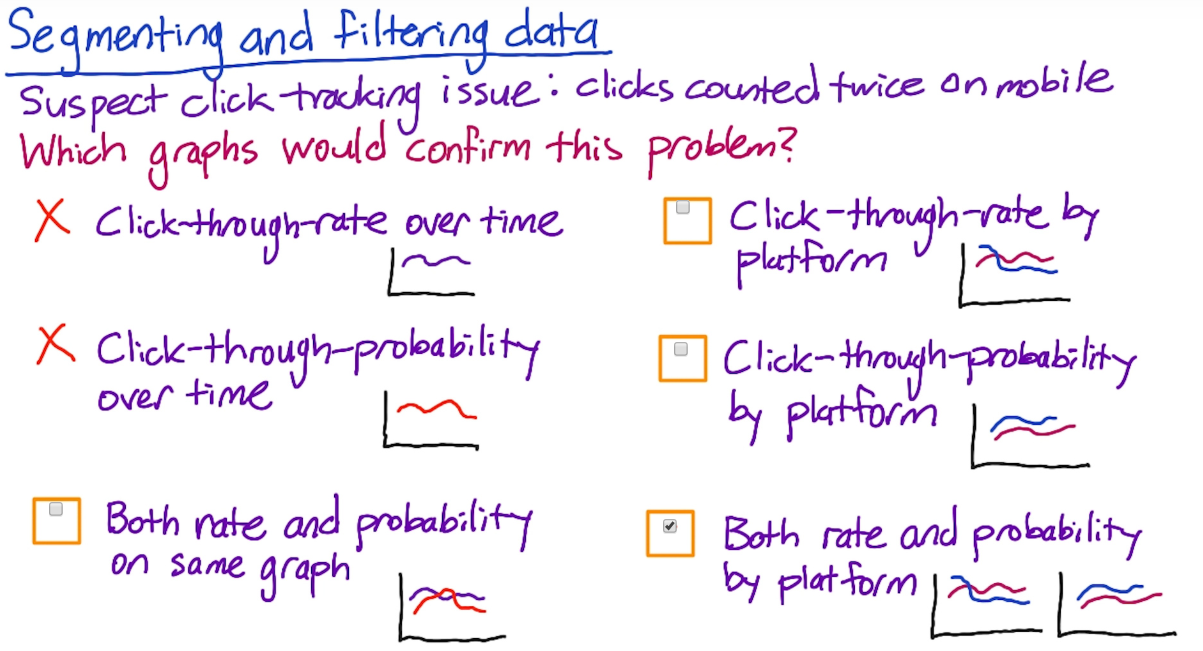 Segmenting and filtering data
Suspect click tracking issue: clicks counted twice on mobile
Which graphs would confirm this problem?
X Click-through-rate over time
X Click-through-probability
over time
Both rate and probability
on same graph
Click-through-rate by
platform
Click-through-probability
by platform
Both rate and probability
by platform